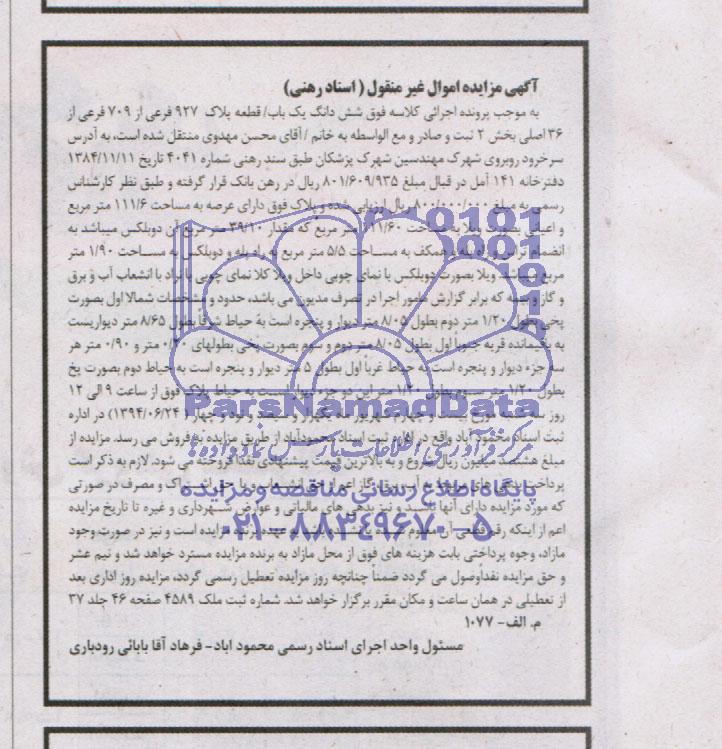 آگهی مزایده اموال غیر منقول ( اسناد رهنی)
به موجب پرونده اجرائی کلاسه فوق شش دانگ یک باب/ قطعه پلاک ۹۲۷ فرعی از ۷۰۹ فرعی از
۳۶ اصلی بخش ۲ ثبت و صادر و مع الواسطه به خانم / آقای محسن مهدوی منتقل شده است، به آدرس
سرخرود روبروی شهرک مهندسین شهرک پزشکان طبق سند رهنی شماره ۴۰۴۱ تاریخ ۱۳۸۴/۱۱/۱۱
دفترخانه ۱۴۱ آمل در قبال مبلغ ۸۰۱/۶۰۹/۹۳۵ ریال در رهن بانک قرار گرفته و طبق نظر کارشناس
رسمی به مبلغ ۸۰۰/۰۰۰/۰۰۰ ریال ارزیابی شده و پلاک فوق دارای عرصه به مساحت ۱۱۱/۶ متر مربع
و اعیانی بصورت ویلا به مساحت ۱۱۱/۶۰ متر مربع که مقدار ۳۹/۱۰ متر مربع آن دوبلکس میباشد به
انضمام تراس و راه پله همکف به مساحت ۵/۵ متر مربع و راه پله و دوبلکس به مساحت ۱/۹۰ متر
مربع میباشد. ویلا بصورت دوبلکس با نمای چوبی داخل ویلا کلا نمای چوبی با نراد با انشعاب آب و برق
و گاز و بیمه که برابر گزارش مامور اجرا در تصرف مدیون می باشد، حدود و مشخصات شمالا اول بصورت
پخی بطول ۱/۲۰ متر دوم بطول ۸/۰۵ متر دیوار و پنجره است به حیاط شرقاً بطول ۸/۶۵ متر دیواریست
به باقیمانده قریه جنوباً اول بطول ۸/۰۵ متر دوم و سوم بصورت پخی بطولهای ۰/۲۰ متر و ۰/۹۰ متر هر
سه جزء دیوار و پنجره است به حیاط غرباً اول بطول ۵ متر دیوار و پنجره است به حیاط دوم بصورت پخ
بطول ۱/۲۰ متر سوم بطول ۱/۲۰ متر این دو جزء دیوار است به حیاط پلاک فوق از ساعت ۹ الی ۱۲
روز سه شنبه مورخ بیست و چهارم شهریور ماه یکهزار و سیصد و نود و چهار ( ۱۳۹۴/۰۶/۲۴) در اداره
ثبت اسناد محمود آباد واقع در اداره ثبت اسناد محمودآباد از طریق مزایده به فروش می رسد. مزایده از
مبلغ هشتصد میلیون ریال شروع و به بالاترین قیمت پیشنهادی نقدا فروخته می شود. لازم به ذکر است
پرداخت بدهی های مربوط به آب، برق، گاز اعم از حق انشعاب و یا حق اشتراک و مصرف در صورتی
که مورد مزایده دارای آنها باشد و نیز بدهی های مالیاتی و عوارض شهرداری و غیره تا تاریخ مزایده
اعم از اینکه رقم قطعی آن معلوم شده یا نشده باشد به عهده برنده مزایده است و نیز در صورت وجود
مازاد، وجوه پرداختی بابت هزینه های فوق از محل مازاد به برنده مزایده مسترد خواهد شد و نیم عشر
و حق مزایده نقداًوصول می گردد ضمناً چنانچه روز مزایده تعطیل رسمی گردد، مزایده روز اداری بعد
از تعطیلی در همان ساعت و مکان مقرر برگزار خواهد شد. شماره ثبت ملک ۴۵۸۹ صفحه ۴۶ جلد ۳۷
م. الف- ۱۰۷۷
مسئول واحد اجرای اسناد رسمی محمود اباد- فرهاد آقا بابائی رودباری
ParsNamadData
مرکز فرآوری اطلاعات پارس نماد داده ها
پایگاه اطلاع رسانی مناقصه و مزایده
۰۲۱-۸۸۳۴۹۶۷۰-۵